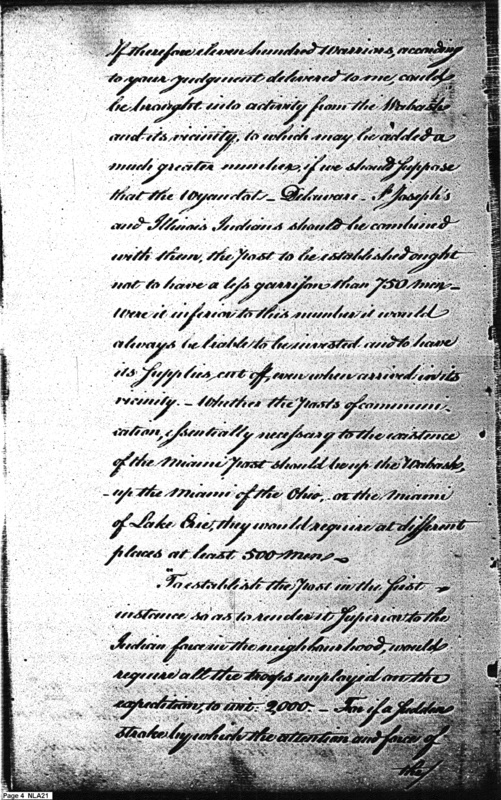 If therefore eleven hundred Warriors, according
to your judgment delivered to me, could
be brought into activity from the Wabash
and its vicinity, to which may be added a
much greater number, if we should suppose
that the Wyandot – Delaware – St Joseph's
and Illinois Indians should be combined
with them, the post to be established ought
not to have a less garrison than 750 men –
were it inferior to this number it would
always be liable to be invested and to have
its supplies, cut off, even when arrived in its
vicinity. – Whether the posts of communi-
cation, essentially necessary to the existence
of the Miami post should be up the Wabash,
up the Miami of the Ohio, or the Miami
of Lake Erie, they would require at different
places at least 500 men –
"To establish the post in the first
instance so as to render it superior to the
Indian force in the neighbourhood, would
require all the troops employed on the
expedition, to wit: 2,000. – For if a sudden
stroke by which the attention and force of
the/
Page 4 NLA21